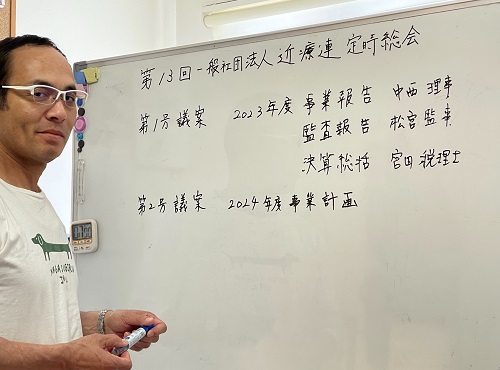 第13回一般社団法人近療連 定時総会
第1号議案 2023年度 事業報告 中西 理事
監査報告 松宮 監事
決算総括 宮田 税理士
第2号議案 2024年度事業計画